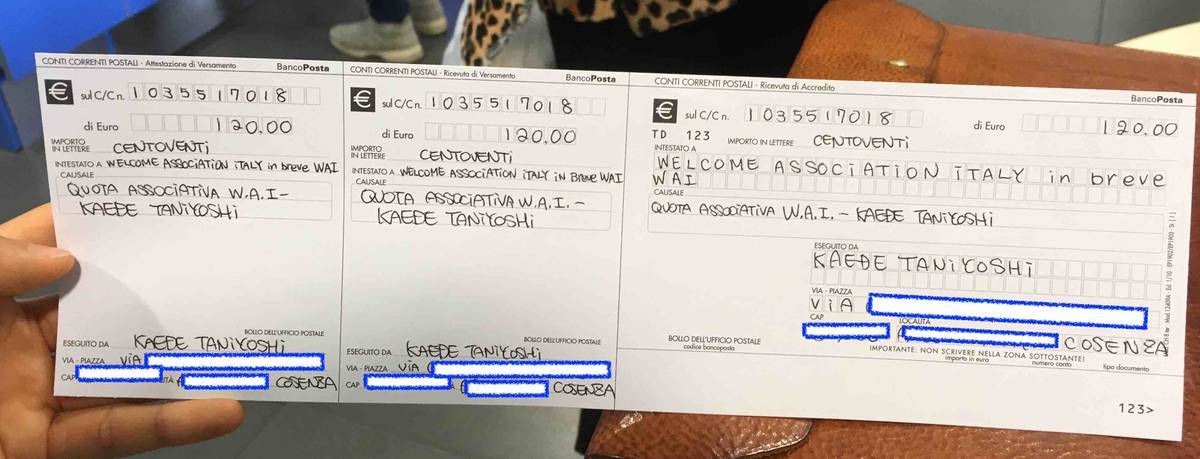 CONTI CORRENTI POSTALI - Attestazione di Versamento BancoPosta
€ sul C/C n. 1035517018
di Euro 120.00
IMPORTO IN LETTERE CENTOVENTi
INTESTATO A WELCOME ASSOCIATION iTALY in breve WAI
CAUSALE
QUOTA ASSOCIATIVA W.A.I-
KAEDE TANiYOSHi
BOLLO DELL'UFFICIO POSTALE
ESEGUITO DA KAEDE TANiYOSHi
VIA - PIAZZA ViA
CAP COSENZA
CONTI CORRENTI POSTALI - Ricevuta di Versamento BancoPosta
€ sul C/C n. 1035517018
di Euro 120.00
IMPORTO IN LETTERE CENTOVENTi
INTESTATO A WELCOME ASSOCIATION iTALY in Breve WAI
CAUSALE
QUOTA ASSOCIATIVA W.A.I.-
KAEDE TANiYOSHi
BOLLO DELL'UFFICIO POSTALE
ESEGUITO DA KAEDE TANiYOSHi
VIA - PIAZZA ViA
CAP COSENZA
CONTI CORRENTI POSTALI - Ricevuta di Accredito BancoPosta
€ sul C/C n. 1035517018 di Euro 120.00
TD 123 IMPORTO IN LETTERE CENTOVENTi
INTESTATO A
WELCOME ASSOCiATION iTALY in breve
WAI
CAUSALE
QUOTA ASSOCIATIVA W.A.I. - KAEDE TANiYOSHi
ESEGUITO DA
KAEDE TANiYOSHi
VIA - PIAZZA
ViA
CAP LOCALITÀ
COSENZA
BOLLO DELL'UFFICIO POSTALE
codice bancoposta
IMPORTANTE: NON SCRIVERE NELLA ZONA SOTTOSTANTE!
importo in euro numero conto tipo documento
123>